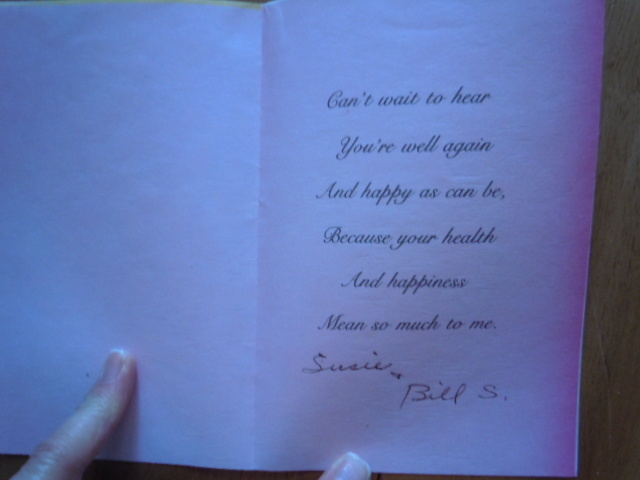 Can't wait to hear
You're well again
And happy as can be,
Because your health
And happiness
Mean so much to me.
Susie &
Bill S.